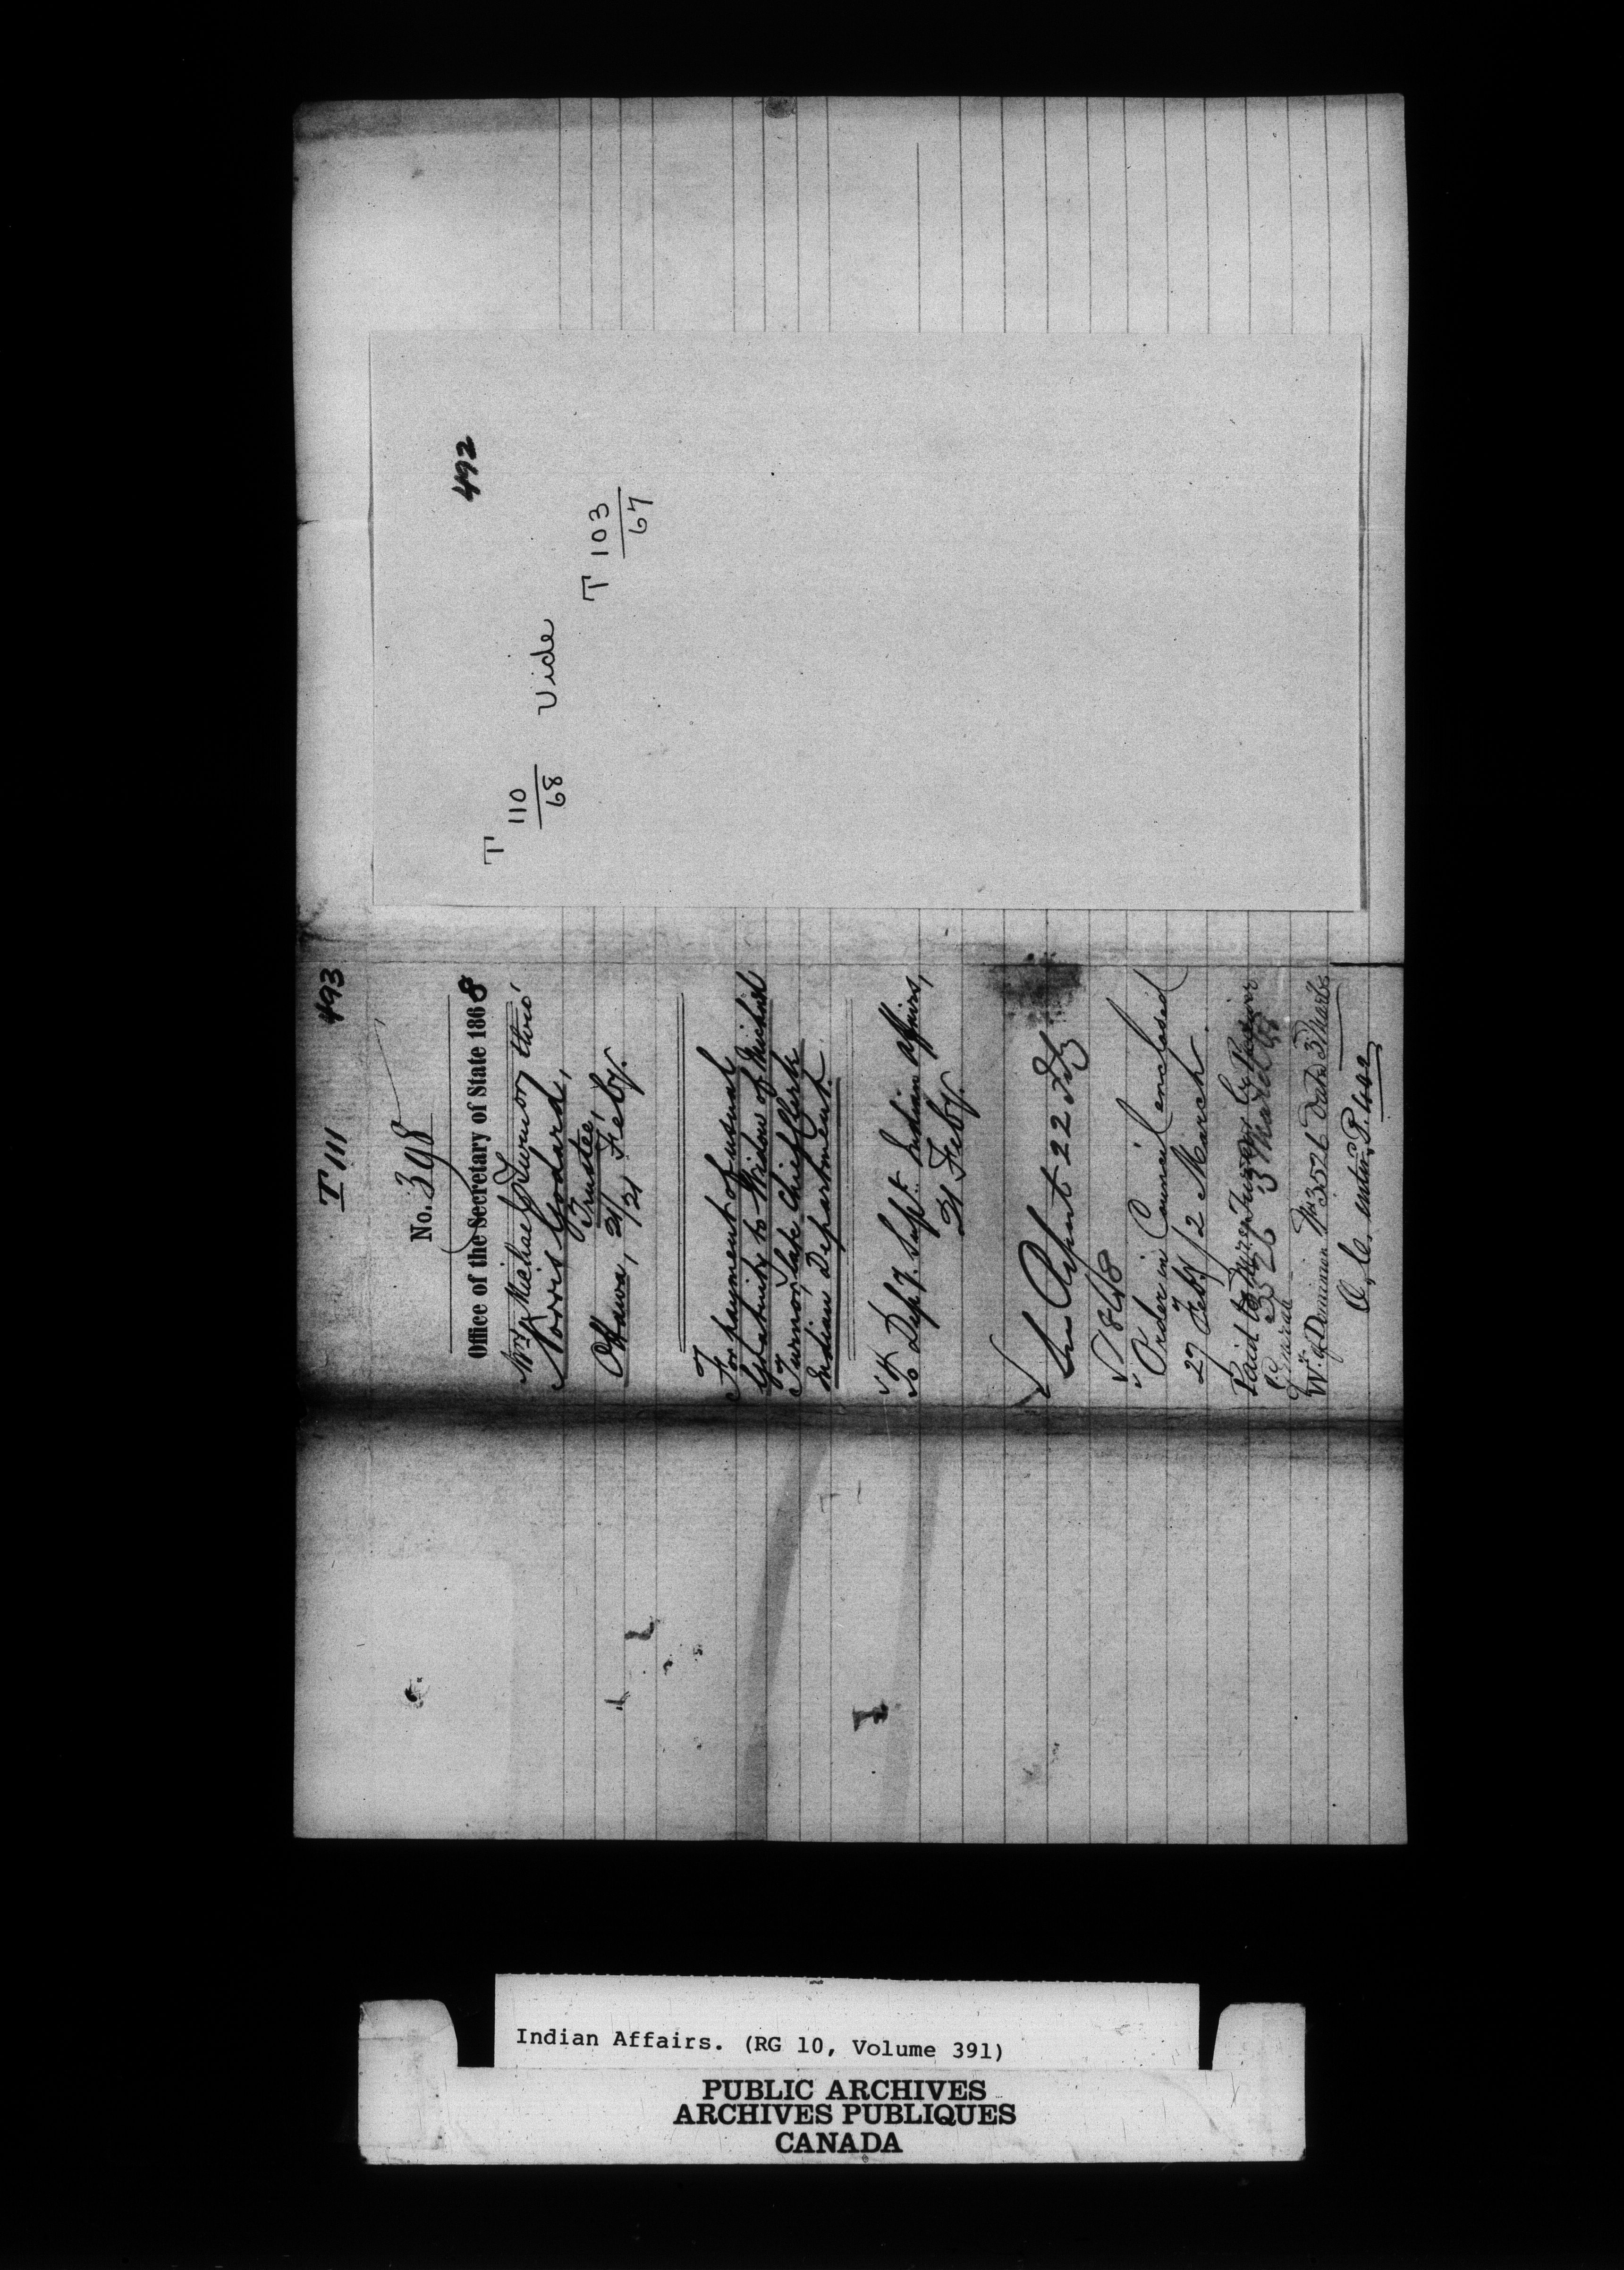 492
T 110/68 Vide
T 103/67
T 111 493
No. 398
Office of the Secretary of State 1868
Mrs Michael Turnor, thro'
Norris Godard,
Trustee,
Ottawa, 21/21 Feby.
For payment of usual
Gratuity to Widow of Michael
Turnor, late Chief Clerk
Indian Department.
To Dep'y. Supt. Indian Affairs,
21 Feby.
Report 22 Feby
8/68
Order in Council enclosed
27 Feby / 2 March
Paid
3526 3 March
No 3526 date 3 March
O. C. entd. P. 442
Indian Affairs. (RG 10, Volume 391)
PUBLIC ARCHIVES
ARCHIVES PUBLIQUES
CANADA